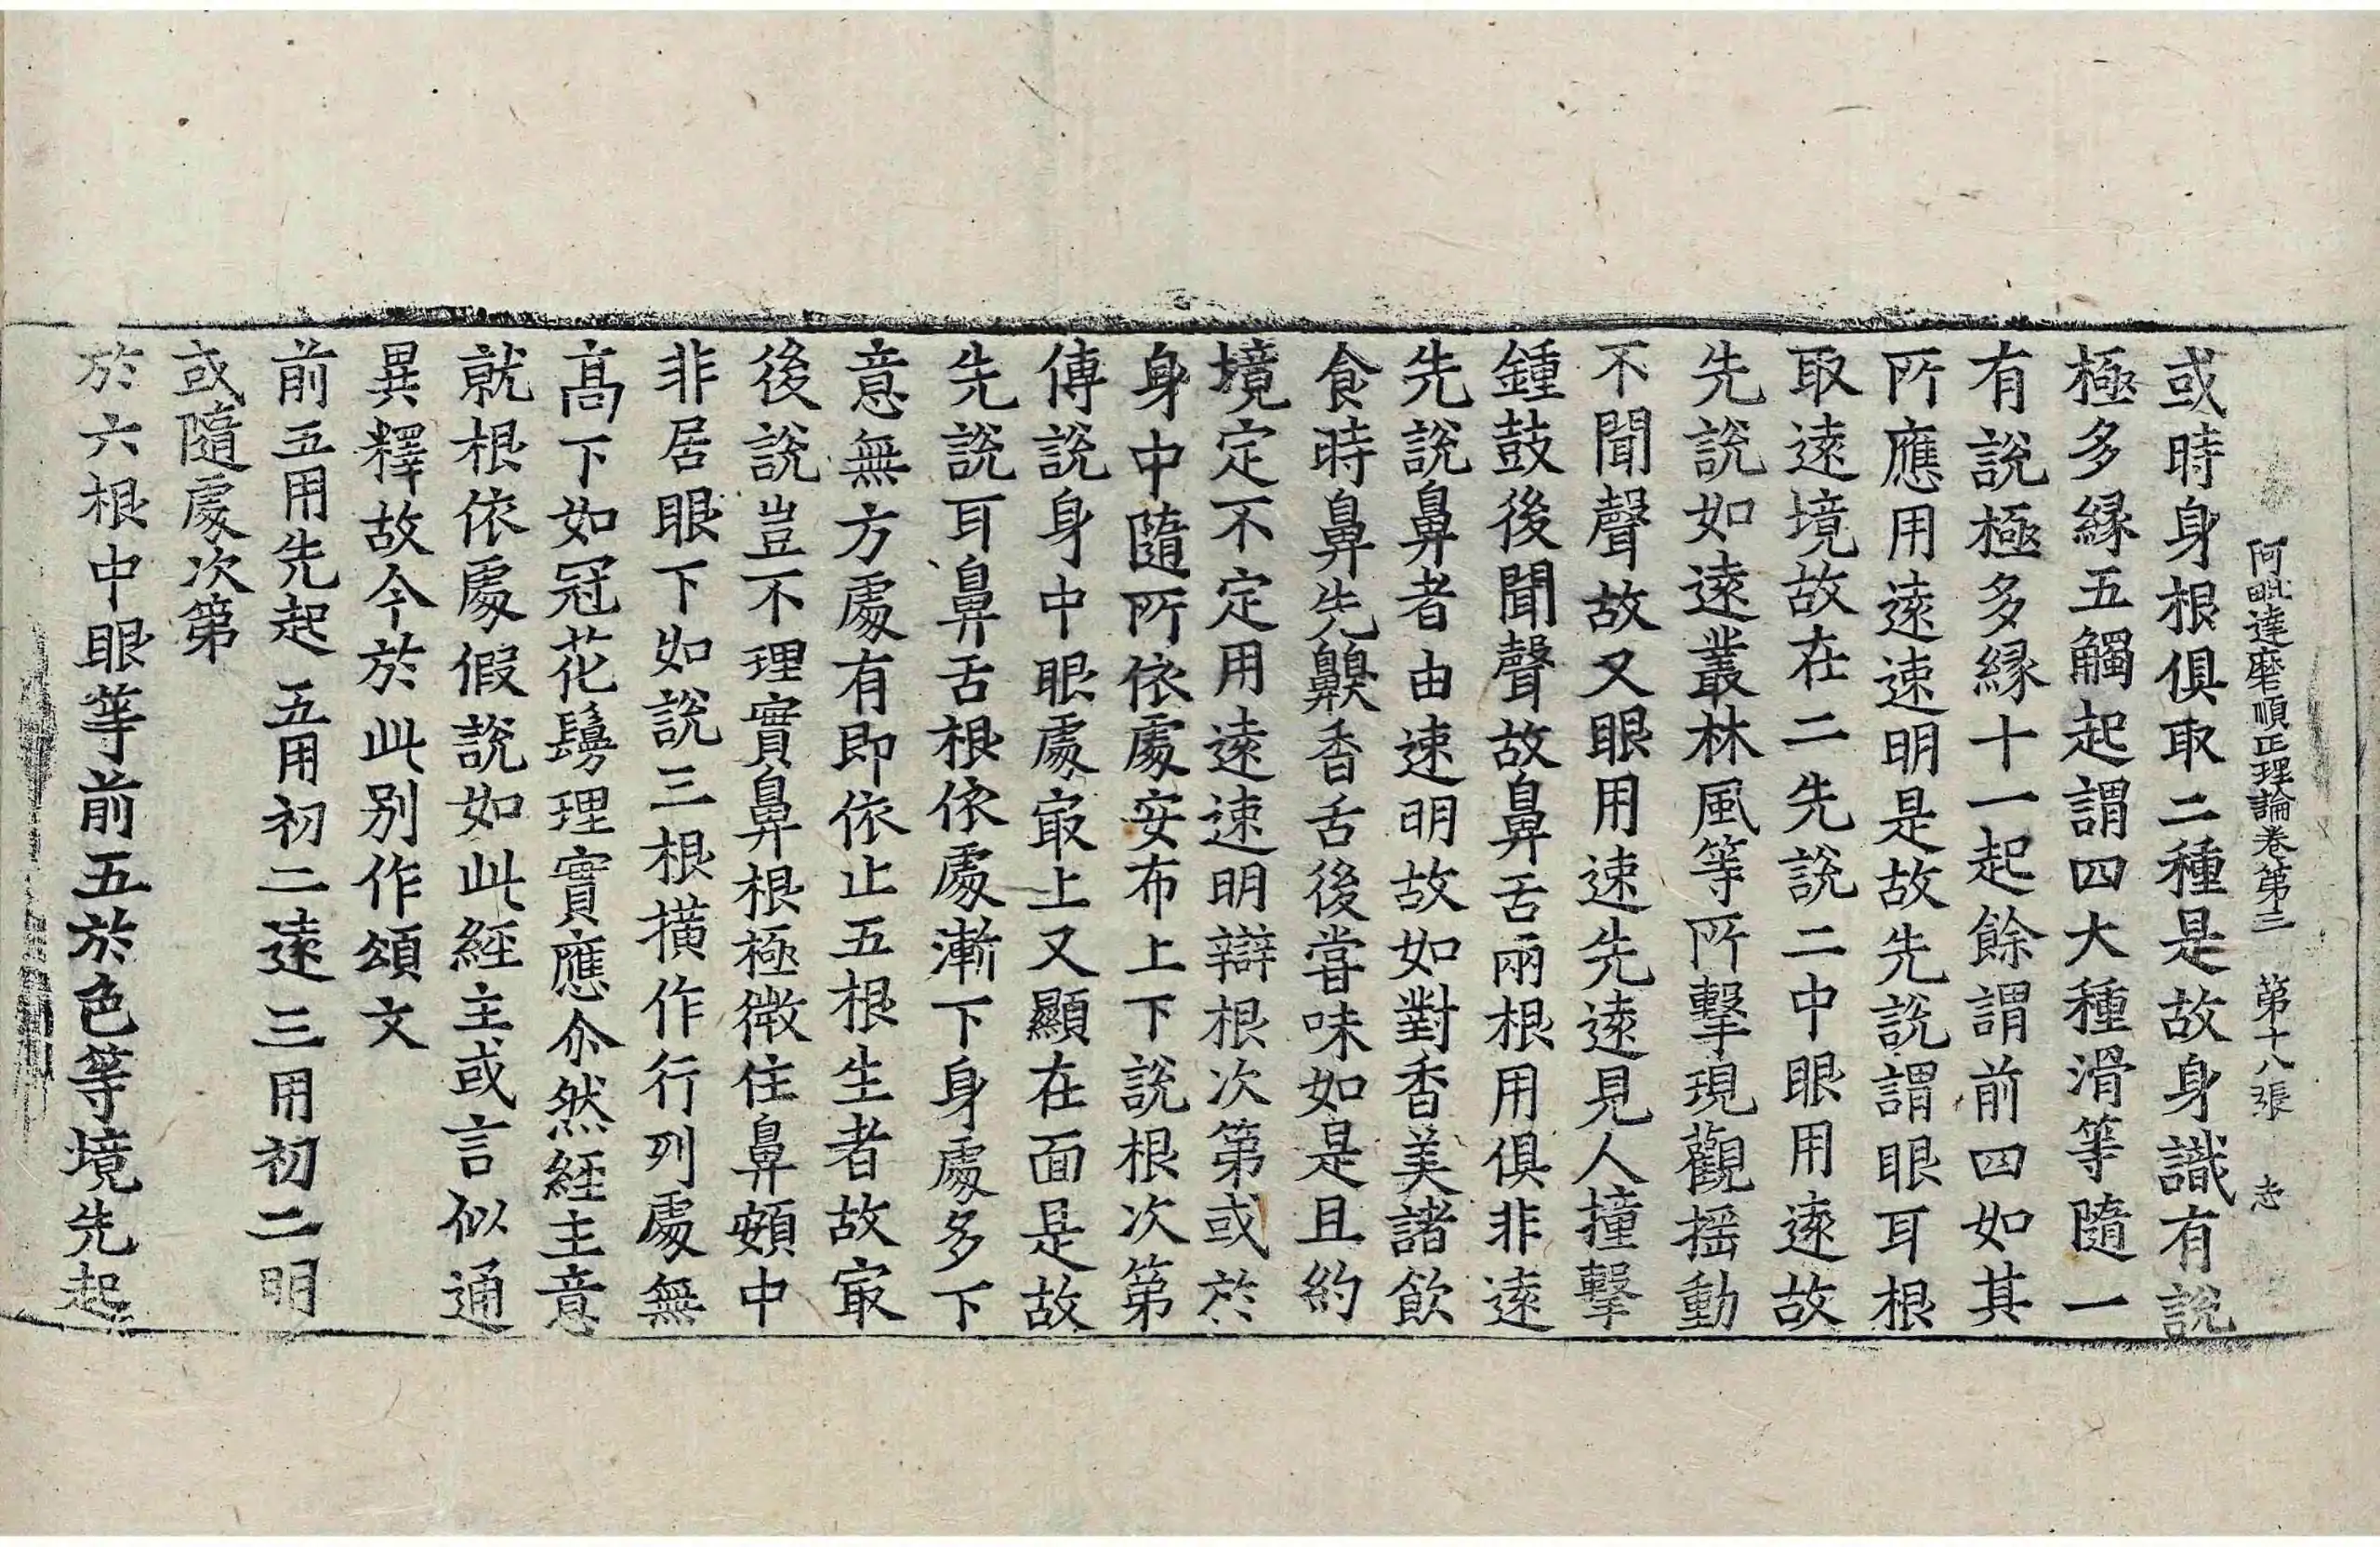 阿毗達磨順正理論卷第三　第十八張　志
或時身根俱取二種是故身識有說
極多緣五觸起謂四大種滑等隨一
有說極多緣十一起餘謂前四如其
所應用遠速明是故先說謂眼耳根
取遠境故在二先說二中眼用遠故
先說如遠叢林風等所擊現觀搖動
不聞聲故又眼用速先遠見人撞擊
鍾鼓後聞聲故鼻舌兩根用俱非遠
先說鼻者由速明故如對香美諸飲
食時鼻先齅香舌後甞味如是且約
境定不定用遠速明辯根次第或於
身中隨所依處安布上下說根次第
傳說身中眼處㝡上又顯在面是故
先說耳鼻舌根依處漸下身處多下
意無方處有即依止五根生者故㝡
後說豈不理實鼻根極微住鼻頞中
非居眼下如說三根橫作行列處無
高下如冠花鬘理實應尒然經主意
就根依處假說如此經主或言似通
異釋故今於此別作頌文
前五用先起　五用初二遠　三用初二明
或隨處次第
於六根中眼等前五於色等境先起